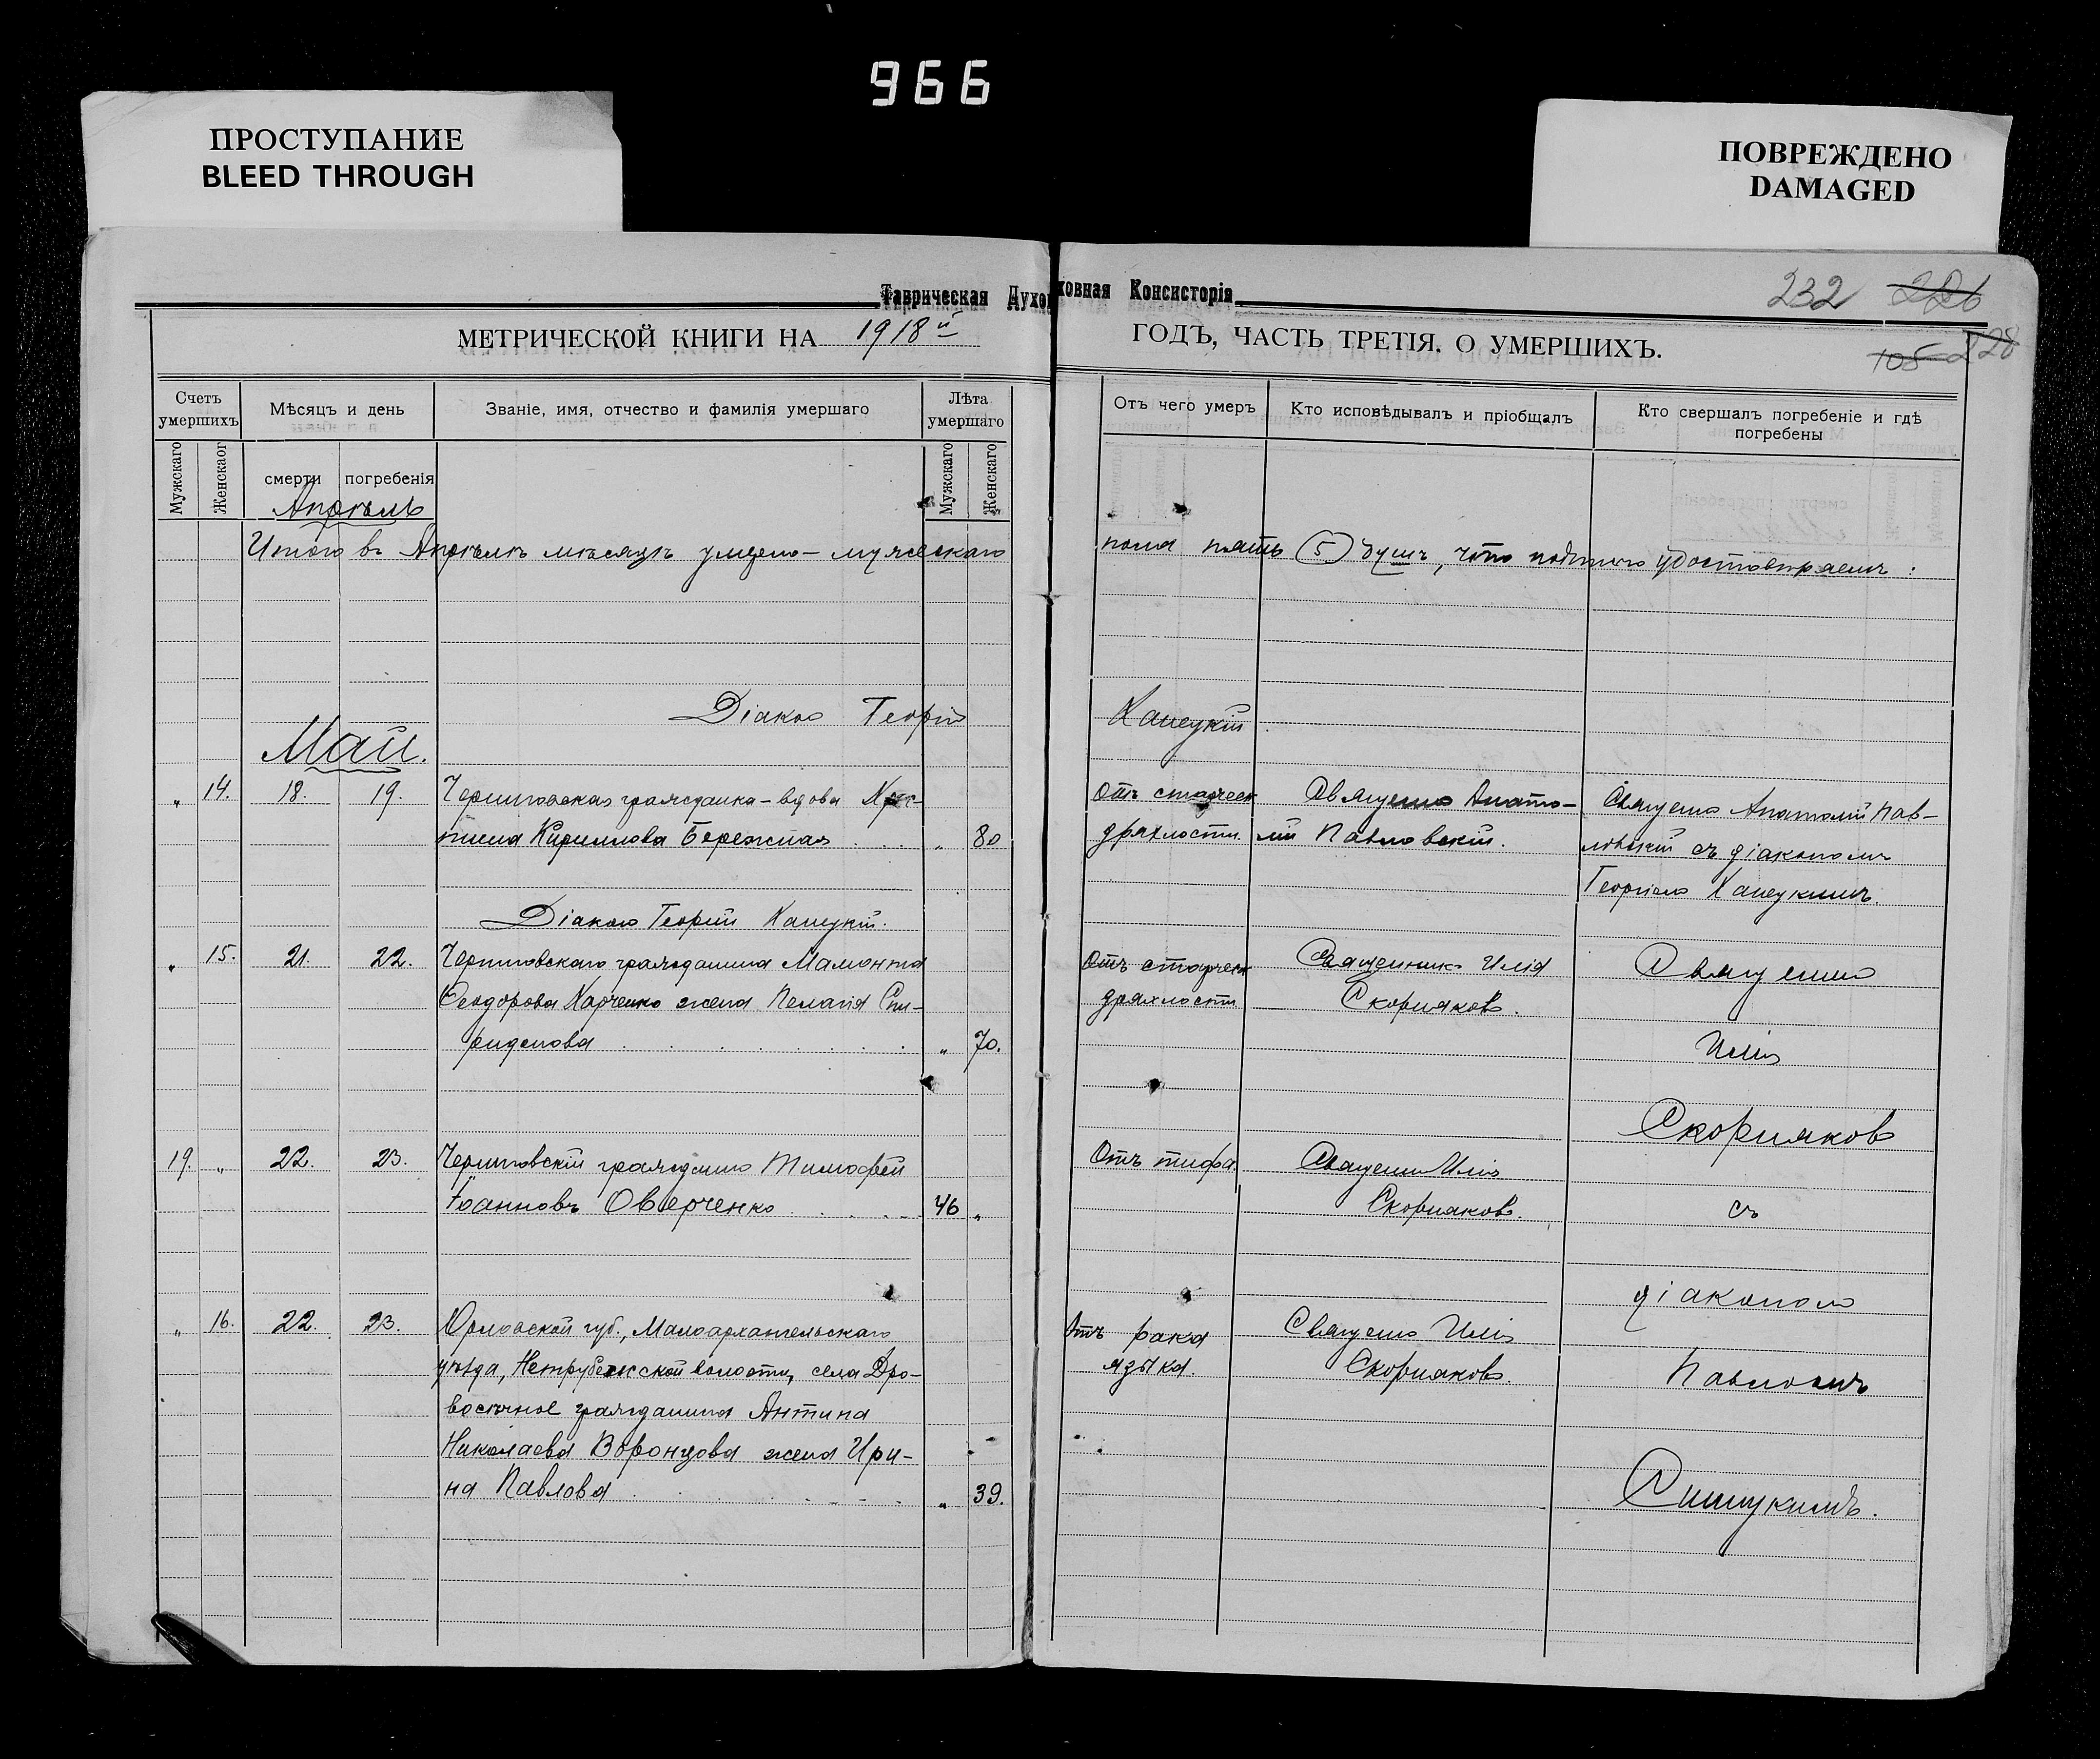 966
ПРОСТУПАНИЕ
BLEED THROUGH
ПОВРЕЖДЕНО
DAMAGED
Таврическая Духовная Консисторія
232 226
МЕТРИЧЕСКОЙ КНИГИ НА 1918й
ГОДЪ, ЧАСТЬ ТРЕТІЯ. О УМЕРШИХЪ.
105 228
Счетъ умершихъ
Мѣсяцъ и день
Званіе, имя, отчество и фамилія умершаго
Лѣта умершаго
Мужскаго
Женскаог
смерти
погребенія
Мужскаго
Женскаго
Отъ чего умеръ
Кто исповѣдывалъ и пріобщалъ
Кто свершалъ погребеніе и гдѣ погребены
Апрѣль
Итого въ Апрѣлѣ мѣсяцѣ умерло – мужескаго
пола пять (5) душъ, что удостовѣряемъ:
Діаконъ Георгій
Капецкій
Май.
„ 14. 18. 19. Черниговская гражданка – вдова Хри-
стина Кириллова Бережная . . . „ 80
Отъ старческ
дряхлости.
Священ Анато-
лій Павловскій.
Священ Анатолій Пав-
ловскій съ діакономъ
Георгіемъ Капецкимъ.
Діаконъ Георгій Капецкій.
„ 15. 21. 22. Черниговскаго гражданина Мамонта
Ѳеодорова Харченко жена Пелагія Спи-
ридонова . . . . . . . „ 70.
Отъ старческ
дряхлости
Священникъ Илія
Скорняковъ.
Священ
Илія
Скорняковъ
19. „ 22. 23. Черниговскій гражданинъ Тимофей
Іоанновъ Оверченко . . . . 46 „
Отъ тифа.
Священ Илія
Скорняковъ.
съ
діакономъ
„ 16. 22. 23. Орловской губ., Малоархангельскаго
уѣзда, Нетрубежской волости, села Дро-
восѣчное гражданина Антипа
Николаева Воронцова жена Ири-
на Павлова . . . . . . „ 39.
Отъ рака
языка.
Священ Илія
Скорняковъ.
Павломъ